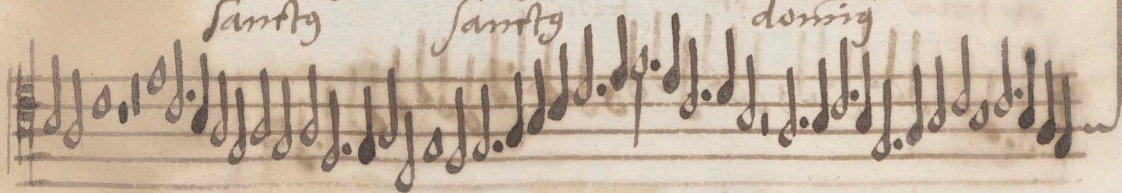 sanctꝰ sanctꝰ dominꝰ